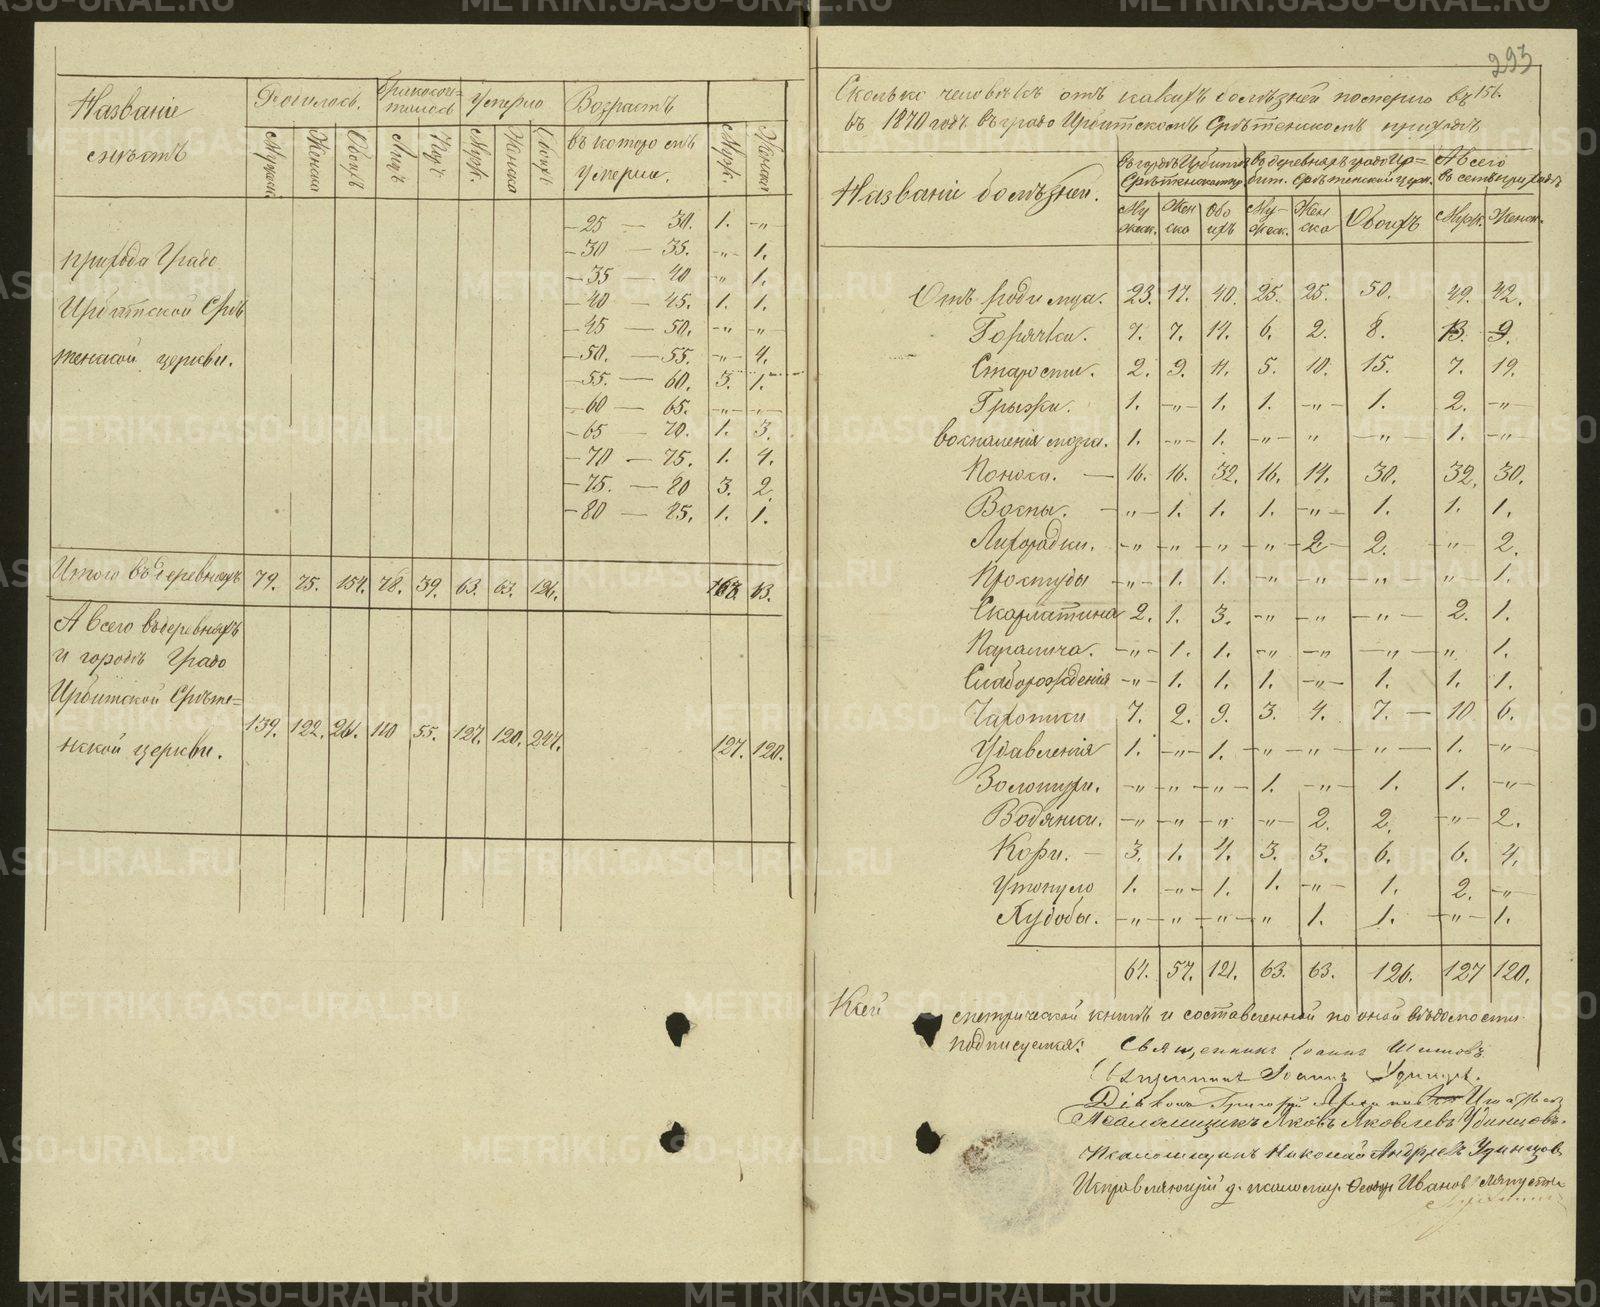 Названіе мѣстъ | Родилось. Мужеск. Женска Обоихъ | Бракосочеталось Лицъ Паръ | Умерло Мужк. Женска Обоихъ | Возрастъ въ которомъ умерли. | Мужк. Женска
прихода Градо
Ирбитской Срѣ
тенской церкви.
25 — 30. 1. -„-
30 — 35. -„- 1.
35 — 40 „ 1.
40 — 45. 1. 1.
45 — 50. -„- -„-
50. — 55. -„- 4.
55. — 60. 3. 1.
60 — 65. -„- -„-
65 — 70. 1. 3.
70 — 75. 1. 4.
75. — 80 3. 2.
80 — 85. 1. 1.
Итого въ деревняхъ 79. 75. 154. 78. 39. 63. 63. 126. 63.
А всего въ деревняхъ
и городѣ Градо
Ирбитской Срѣте=
нской церкви. 139. 122. 261. 110 55. 127. 120. 247. 127. 120.
293
Сколько человѣкъ отъ какихъ болѣзней померло въ
въ 1870 годѣ въ градо Ирбитскомъ Срѣтенскомъ приходѣ
Названіе болѣзней. | въ городѣ Ирбитѣ Срѣтенской | въ деревняхъ градо Ир=бит. Срѣтенской церк. | А всего въ семъ приходѣ
Мужеск. Женско Обоихъ Мужеск. Женско Обоихъ Мужк. Женск.
Отъ родимца. 23. 17. 40. 25. 25. 50. 49. 42.
Горячки. 7. 7. 14. 6. 2. 8. 13. 9.
Старости. 2. 9. 11. 5. 10. 15. 7. 19.
Грыжи. 1. -„- 1. 1. -„- 1. 2. -„-
воспаленія мозга. 1. -„- 1. -„- „ -„- 1. -„-
Поноса. 16. 16. 32. 16. 14. 30. 32. 30.
Воспы. -„- 1. 1. 1. -„- 1. 1. 1.
Лихорадки. -„- -„- -„- -„- 2 2. -„- 2.
Простуды -„- 1. 1. -„- -„- -„- -„- 1.
Скарлатина 2. 1. 3. -„- -„- -„- 2. 1.
Паралича. -„- 1. 1. -„- -„- -„- „ 1.
Слаборожденія -„- 1. 1. 1. -„- 1. 1. 1.
Чахотки 7. 2. 9. 3. 4. 7. 10 6.
Удавленія 1. -„- 1. -„- -„- -„- 1. -„-
Золотухи. -„- -„- -„- 1. -„- 1. 1. -„-
Водянки. -„- -„- -„- -„- 2. 2. -„- 2.
Кори. 3. 1. 4. 3. 3. 6. 6. 4.
Утонуло 1. -„- 1. 1. -„- 1. 2. -„-
Худобы. -„- -„- -„- „ 1. 1. -„- 1.
64. 57. 121. 63. 63. 126. 127 120.
К сей метрической книгѣ и составленной по оной вѣдомости
подписуемся: Священникъ Іоаннъ Шишовъ
Священникъ Іоаннъ Удинцовъ.
Діаконъ Григорій
Псаломщикъ Яковъ Яковлевъ Удинцовъ.
Псаломщикъ Николай Андреевъ Удинцов
Исправляющій д. псаломщ. Иванов
METRIKI.GASO-URAL.RU